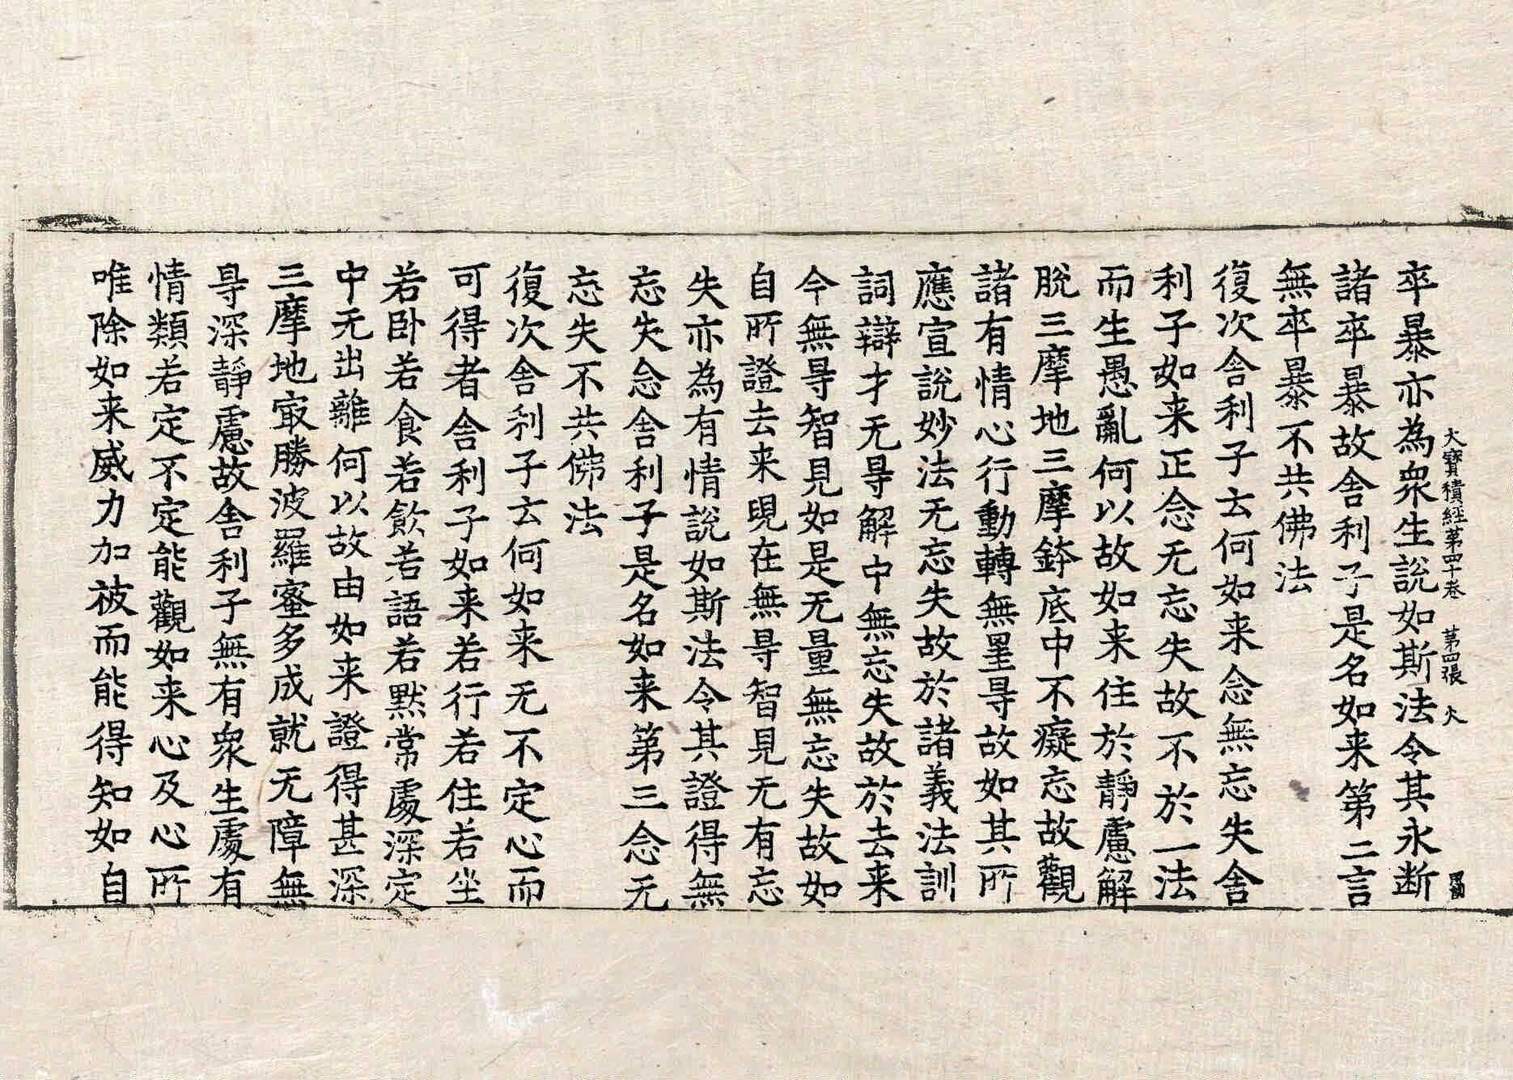 大寶積經第四十卷　第四張　火
卒暴亦為衆生說如斯法令其永断
諸卒暴故舎利子是名如来第二言
無卒暴不共佛法
復次舎利子云何如来念無忘失舎
利子如来正念无忘失故不於一法
而生愚亂何以故如来住於靜慮解
脫三摩地三摩鉢底中不癡忘故觀
諸有情心行動轉無罣㝵故如其所
應宣說妙法无忘失故於諸義法訓
詞辯才无㝵解中無忘失故於去来
今無㝵智見如是无量無忘失故如
自所證去来現在無㝵智見无有忘
失亦為有情說如斯法令其證得無
忘失念舎利子是名如来第三念无
忘失不共佛法
復次舎利子云何如来无不定心而
可得者舎利子如来若行若住若坐
若卧若食若飲若語若黙常處深定
中无出離何以故由如来證得甚深
三摩地㝡勝波羅蜜多成就无障無
㝵深靜慮故舎利子無有衆生處有
情類若定不定能觀如来心及心所
唯除如来威力加被而能得知如自